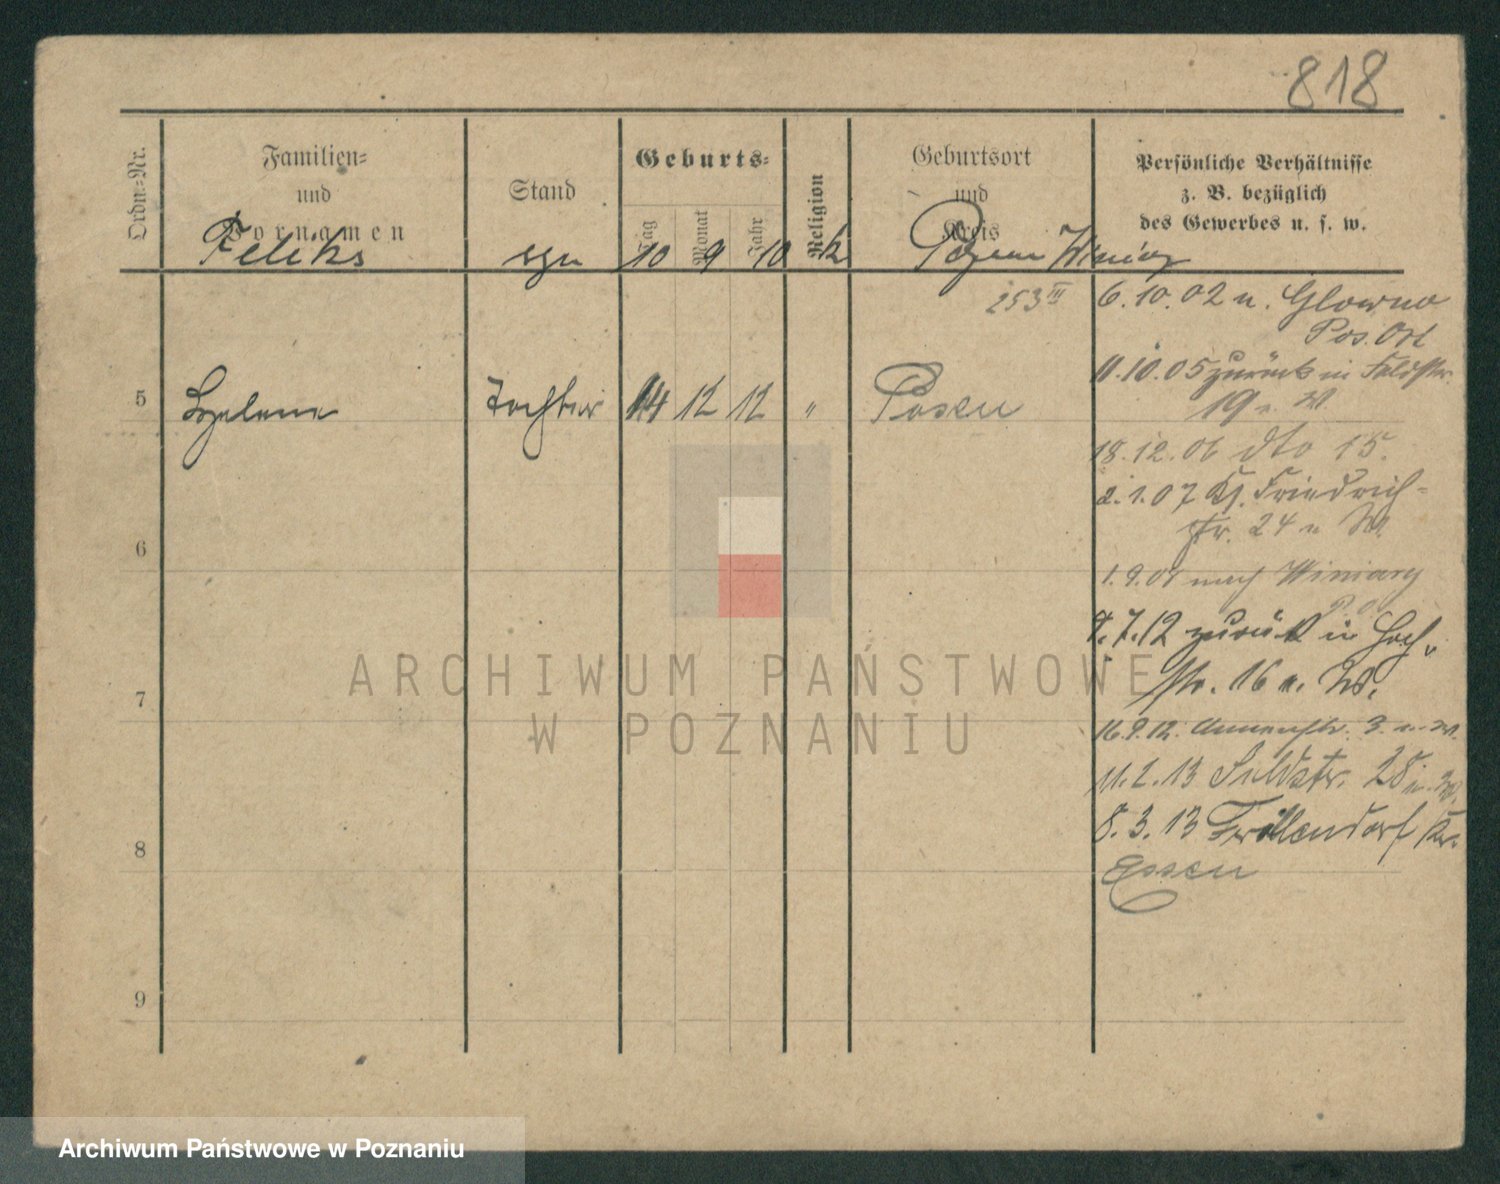 818
Ordn.-Nr.
Familien-
und
Vornamen
Stand
Geburts-
Tag
Monat
Jahr
Religion
Geburtsort
und
Kreis
Persönliche Verhältnisse
z. B. bezüglich
des Gewerbes u. s. w.
Feliks 10 9 10 k Winiary
253 III 6.10.02 n. Glowno
Pos. Ost
11.10.05 zurück in Feldstr.
19 n. W.
5 Tochter 14 12 12 " Posen
18.12.06 dto 15.
2.1.07 Kl. Friedrich-
str. 24 n. W.
6
1.9.08 nach Winiary
P. O.
9.7.12 zurück in Hoch-
str. 16 n. W.
7
16.9.12. Annenstr. 3. n. W.
11.2.13 Feldstr. 28 n. W.
8.3.13 Frillendorf Kr.
8
Essen
9
ARCHIWUM PAŃSTWOWE
W POZNANIU
Archiwum Państwowe w Poznaniu